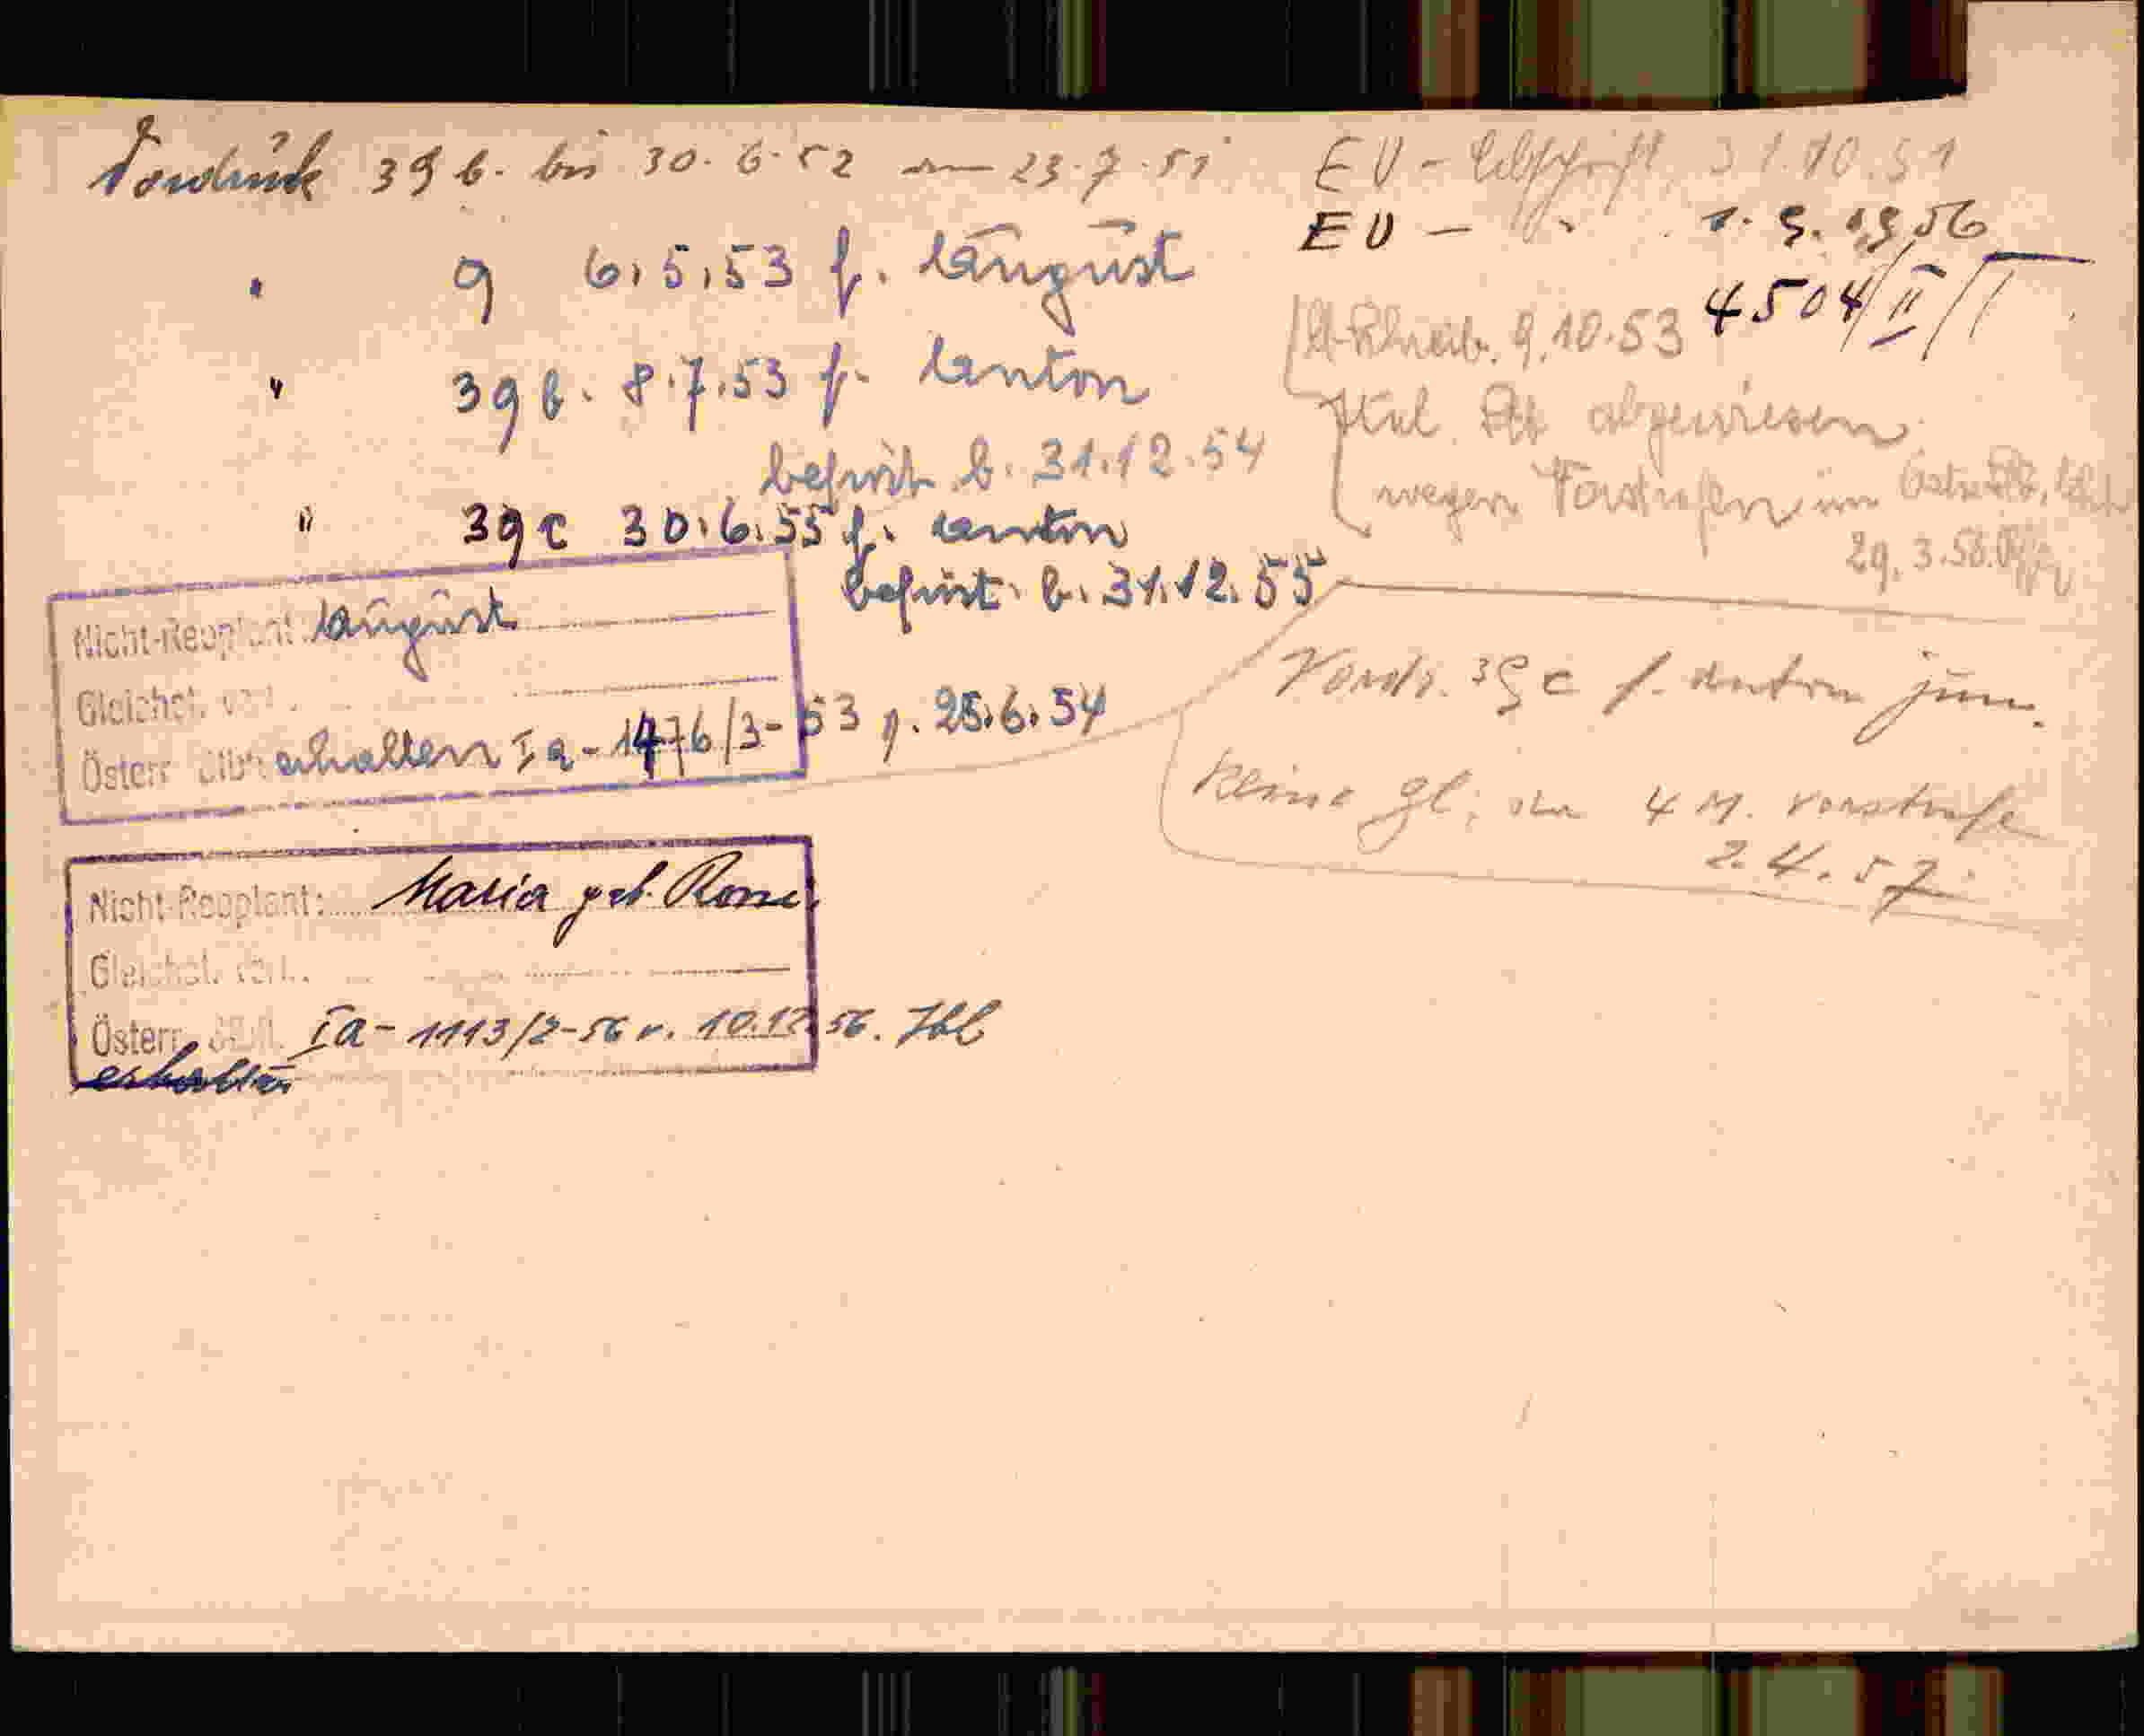 Vordruck 39 b. bis 30.6.52 am 23.7.51
" 9 6.5.53 f. August
" 39 b. 8.7.53 f. Anton
befrist. b. 31.12.54
" 39 c 30.6.55 f. Anton
befrist. b. 31.12.55
Nicht-Reoptant: August
Gleichst. verl.
Österr. erhalten Ia-1476/3-53 v. 25.6.54
Nicht-Reoptant: Maria geb.
Gleichst. verl.
Österr. Ia-1113/2-56 v. 10.12.56.
erhalten
EU - Abschrift 31.10.51
EU - " 1.9.1956
4504/II/I
9.10.53
abgewiesen
wegen Vorstrafen im
29.3.56
Vordr. 39 c f. Anton jun.
keine Gl. 4 M. Vorstrafe
2.4.57